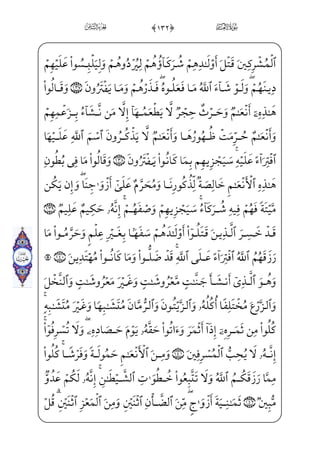 سورة الأنعام ﴿١٣٢﴾ الجزء الثامن
ٱلْمُشْرِكِينَ قَتْلَ أَوْلَٰدِهِمْ شُرَكَآؤُهُمْ لِيُرْدُوهُمْ وَلِيَلْبِسُوا۟ عَلَيْهِمْ
دِينَهُمْ ۖ وَلَوْ شَآءَ ٱللَّهُ مَا فَعَلُوهُ ۖ فَذَرْهُمْ وَمَا يَفْتَرُونَ ١٣٧ وَقَالُوا۟
هَٰذِهِۦٓ أَنْعَٰمٌ وَحَرْثٌ حِجْرٌ لَّا يَطْعَمُهَآ إِلَّا مَن نَّشَآءُ بِزَعْمِهِمْ
وَأَنْعَٰمٌ حُرِّمَتْ ظُهُورُهَا وَأَنْعَٰمٌ لَّا يَذْكُرُونَ ٱسْمَ ٱللَّهِ عَلَيْهَا
ٱفْتِرَآءً عَلَيْهِ ۚ سَيَجْزِيهِم بِمَا كَانُوا۟ يَفْتَرُونَ ١٣٨ وَقَالُوا۟ مَا فِى بُطُونِ
هَٰذِهِ ٱلْأَنْعَٰمِ خَالِصَةٌ لِّذُكُورِنَا وَمُحَرَّمٌ عَلَىٰٓ أَزْوَٰجِنَا ۖ وَإِن يَكُن
مَّيْتَةً فَهُمْ فِيهِ شُرَكَآءُ ۚ سَيَجْزِيهِمْ وَصْفَهُمْ ۚ إِنَّهُۥ حَكِيمٌ عَلِيمٌ ١٣٩
قَدْ خَسِرَ ٱلَّذِينَ قَتَلُوٓا۟ أَوْلَٰدَهُمْ سَفَهًۢا بِغَيْرِ عِلْمٍ وَحَرَّمُوا۟ مَا
رَزَقَهُمُ ٱللَّهُ ٱفْتِرَآءً عَلَى ٱللَّهِ ۚ قَدْ ضَلُّوا۟ وَمَا كَانُوا۟ مُهْتَدِينَ ١٤٠ ۞
وَهُوَ ٱلَّذِىٓ أَنشَأَ جَنَّٰتٍ مَّعْرُوشَٰتٍ وَغَيْرَ مَعْرُوشَٰتٍ وَٱلنَّخْلَ
وَٱلزَّرْعَ مُخْتَلِفًا أُكُلُهُۥ وَٱلزَّيْتُونَ وَٱلرُّمَّانَ مُتَشَٰبِهًا وَغَيْرَ مُتَشَٰبِهٍ ۚ
كُلُوا۟ مِن ثَمَرِهِۦٓ إِذَآ أَثْمَرَ وَءَاتُوا۟ حَقَّهُۥ يَوْمَ حَصَادِهِۦ ۖ وَلَا تُسْرِفُوٓا۟ ۚ
إِنَّهُۥ لَا يُحِبُّ ٱلْمُسْرِفِينَ ١٤١ وَمِنَ ٱلْأَنْعَٰمِ حَمُولَةً وَفَرْشًا ۚ كُلُوا۟
مِمَّا رَزَقَكُمُ ٱللَّهُ وَلَا تَتَّبِعُوا۟ خُطُوَٰتِ ٱلشَّيْطَٰنِ ۚ إِنَّهُۥ لَكُمْ عَدُوٌّ
مُّبِينٌ ١٤٢ ثَمَٰنِيَةَ أَزْوَٰجٍ ۖ مِّنَ ٱلضَّأْنِ ٱثْنَيْنِ وَمِنَ ٱلْمَعْزِ ٱثْنَيْنِ ۗ قُلْ